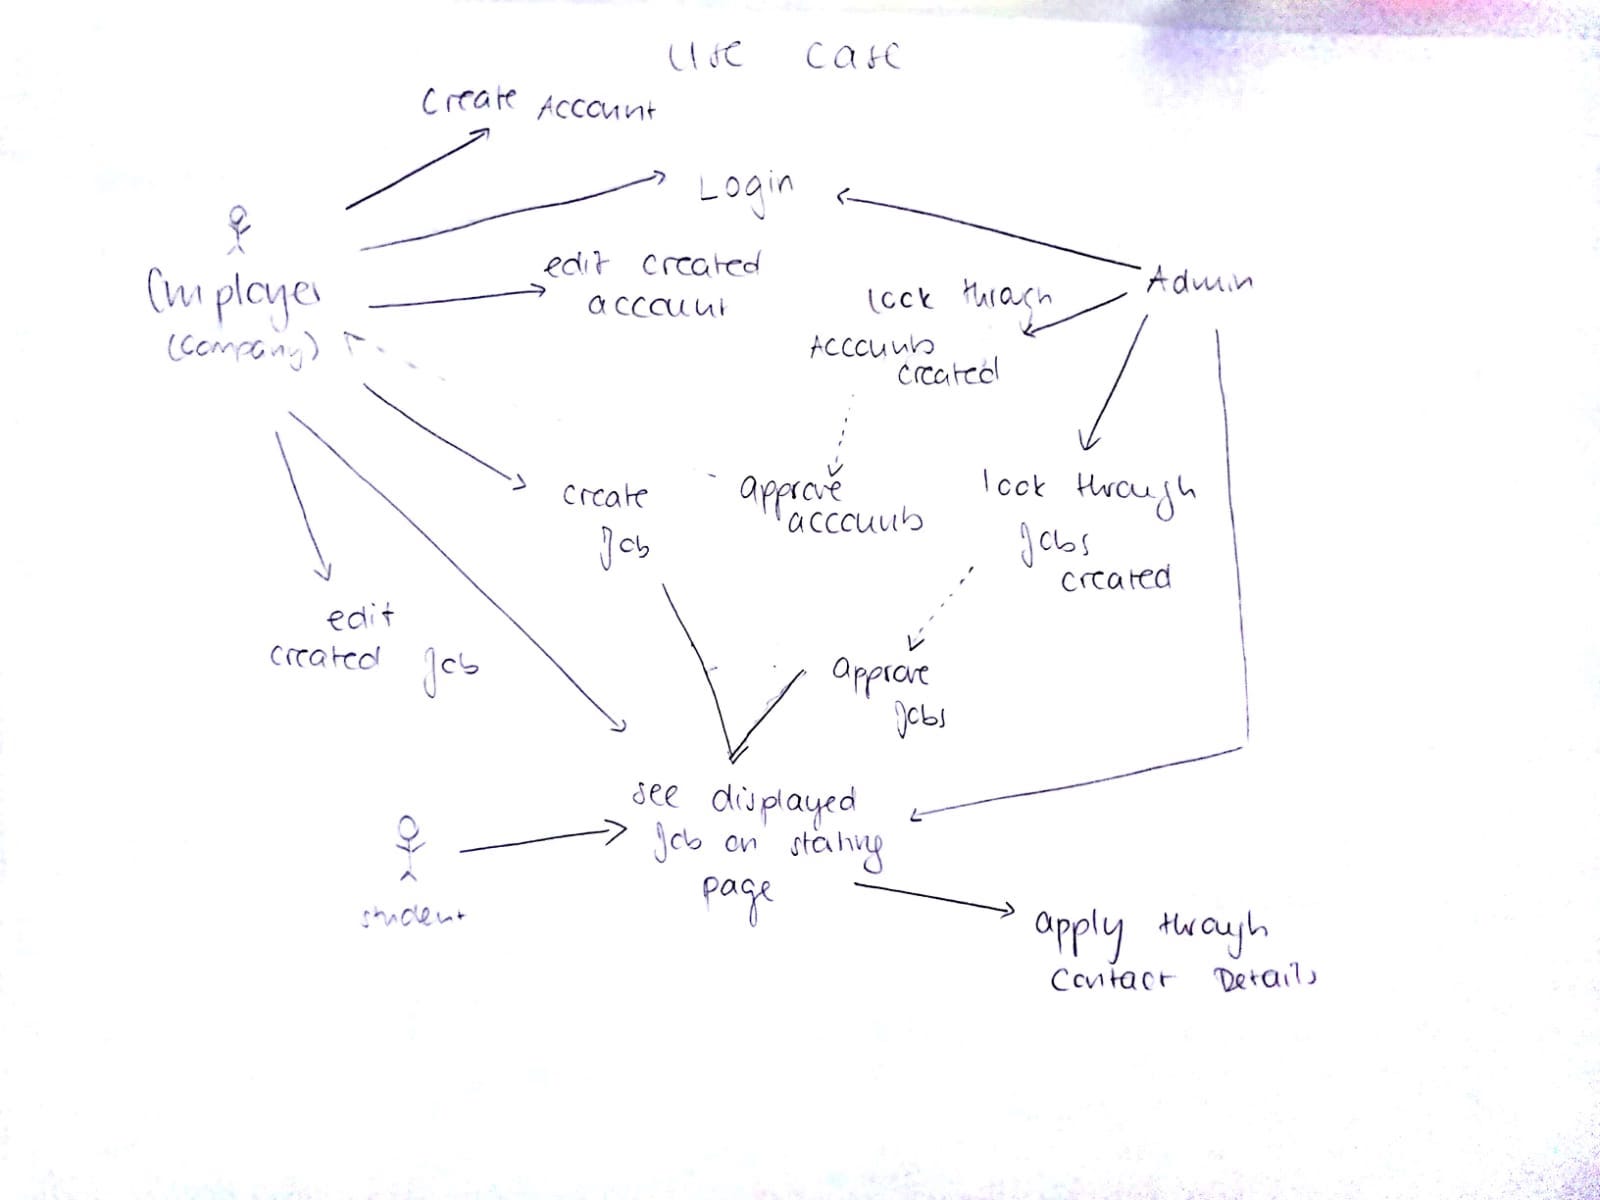 Use Case
Create Account
Login
Employer
(Company)
edit created
account
Admin
look through
Accounts
created
create
Job
approve
accounts
look through
Jobs
created
edit
created Job
approve
Jobs
see displayed
Job on
page
student
apply through
Contact Details